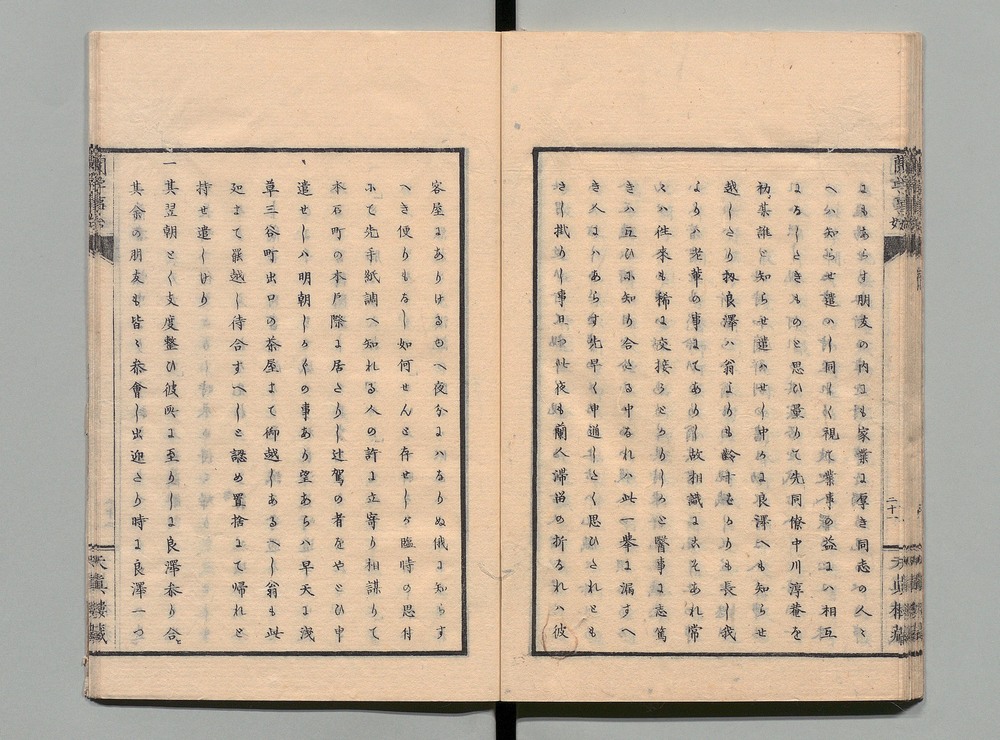 蘭學事始
二十一
天眞樓藏
にもあらす朋友の内にも家業に厚き同志の人々
へハ知らせ遣ハし同しく視て業事の益にハ相互
になしたきものと思ひ量りて先同僚中川淳菴を
初某誰と知らせ遣ハせし中に良澤へも知らせ
越したり扨良澤ハ翁よりも齢十をあまりも長し我
よりハ老輩の事にてありし故相識にこそあれ常
々ハ往來も稀に交接うとかりしかと醫事に志篤
きハ互ひに知り合たる中なれハ此一擧に漏すへ
き人にハあらす先早く申通したく思ひたれとも
さし掛りし事且つ此夜も蘭人滞留の折なれハ彼
客屋にありけるゆへ夜分にハなりぬ俄に知らす
へき便りもなし如何せんと存せしか臨時の思付
にて先手紙調へ知れる人の許に立寄り相謀りて
本石町の木戸際に居たりし辻駕の者をやとひ申
遣せしハ明朝しか〳〵の事あり望あらハ早天に浅
草三谷町出口の茶屋まて御越しあるへし翁も此
処まて罷越し待合すへしと認め置捨にて帰れと
持せ遣しけり
一其翌朝とく支度整ひ彼所に至りしに良澤参り合
其余の朋友も皆々參會し出迎たり時に良澤一つ
蘭學事始
天眞樓藏